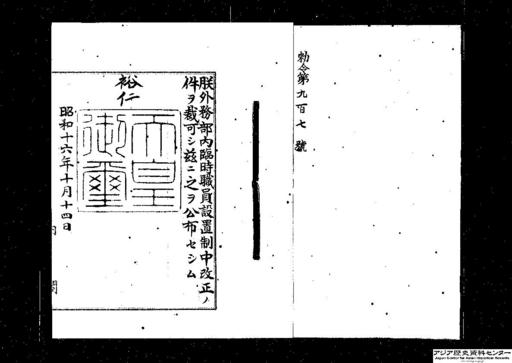 勅令第九百七號
朕外務部內臨時職員設置制中改正ノ
件ヲ裁可シ茲ニ之ヲ公布セシム
裕仁
天皇
御璽
昭和十六年十月十四日
アジア歴史資料センター
Japan Center for Asian Historical Records